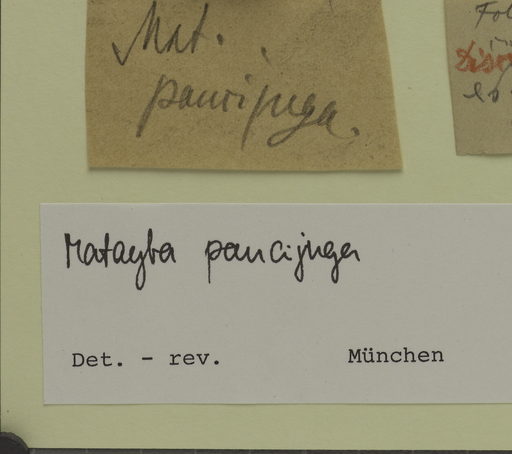 Mat.
paucijuga.
Fol
Matayba paucijuga
Det. - rev. München